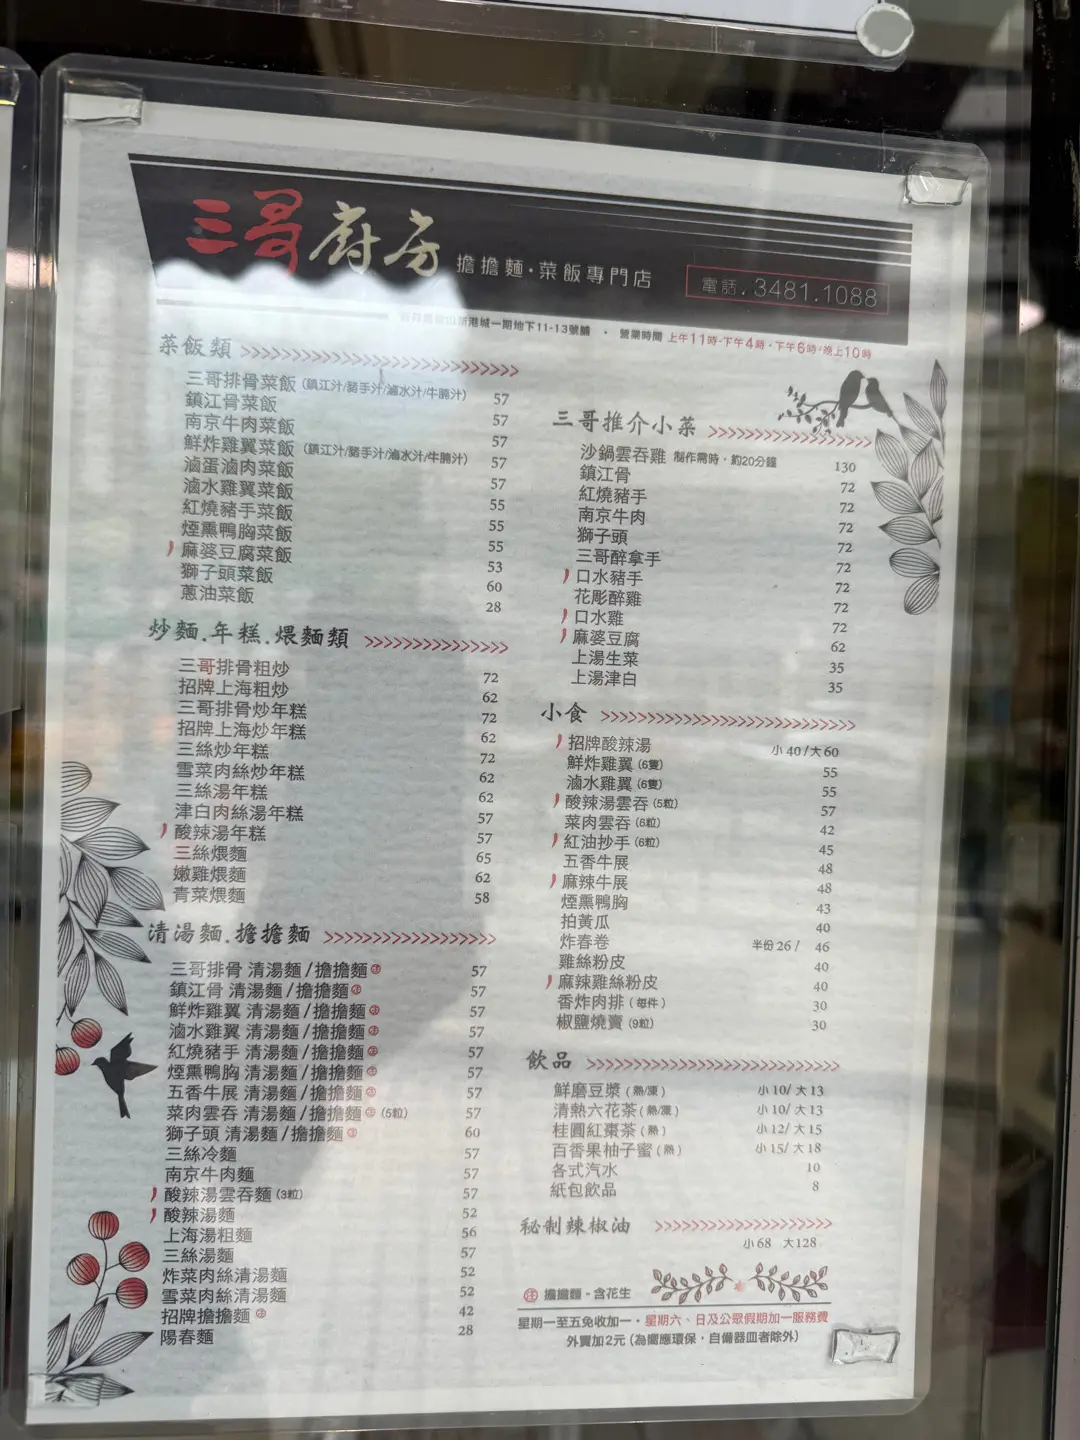 三哥廚房 擔擔麵·菜飯專門店 電話.3481.1088
山新港城一期地下11-13號舖 · 營業時間 上午11時-下午4時,下午6時-晚上10時
菜飯類
三哥排骨菜飯 (鎮江汁/豬手汁/滷水汁/牛腩汁) 57
鎮江骨菜飯 57
南京牛肉菜飯 57
鮮炸雞翼菜飯 (鎮江汁/豬手汁/滷水汁/牛腩汁) 57
滷蛋滷肉菜飯 57
滷水雞翼菜飯 55
紅燒豬手菜飯 55
煙熏鴨胸菜飯 55
麻婆豆腐菜飯 53
獅子頭菜飯 60
蔥油菜飯 28
炒麵.年糕.煨麵類
三哥排骨粗炒 72
招牌上海粗炒 62
三哥排骨炒年糕 72
招牌上海炒年糕 62
三絲炒年糕 72
雪菜肉絲炒年糕 62
三絲湯年糕 62
津白肉絲湯年糕 57
酸辣湯年糕 57
三絲煨麵 65
嫩雞煨麵 62
青菜煨麵 58
清湯麵.擔擔麵
三哥排骨 清湯麵/擔擔麵 注 57
鎮江骨 清湯麵/擔擔麵 注 57
鮮炸雞翼 清湯麵/擔擔麵 注 57
滷水雞翼 清湯麵/擔擔麵 注 57
紅燒豬手 清湯麵/擔擔麵 注 57
煙熏鴨胸 清湯麵/擔擔麵 注 57
五香牛展 清湯麵/擔擔麵 注 57
菜肉雲吞 清湯麵/擔擔麵 注 (5粒) 57
獅子頭 清湯麵/擔擔麵 注 60
三絲冷麵 57
南京牛肉麵 57
酸辣湯雲吞麵 (3粒) 57
酸辣湯麵 52
上海湯粗麵 56
三絲湯麵 57
炸菜肉絲清湯麵 52
雪菜肉絲清湯麵 52
招牌擔擔麵 注 42
陽春麵 28
三哥推介小菜
沙鍋雲吞雞 制作需時,約20分鐘 130
鎮江骨 72
紅燒豬手 72
南京牛肉 72
獅子頭 72
三哥醉拿手 72
口水豬手 72
花彫醉雞 72
口水雞 72
麻婆豆腐 62
上湯生菜 35
上湯津白 35
小食
招牌酸辣湯 小40/大60
鮮炸雞翼 (6隻) 55
滷水雞翼 (6隻) 55
酸辣湯雲吞 (5粒) 57
菜肉雲吞 (6粒) 42
紅油抄手 (6粒) 45
五香牛展 48
麻辣牛展 48
煙熏鴨胸 43
拍黃瓜 40
炸春卷 半份26/ 46
雞絲粉皮 40
麻辣雞絲粉皮 40
香炸肉排 (每件) 30
椒鹽燒賣 (9粒) 30
飲品
鮮磨豆漿 (熱/凍) 小10/大13
清熱六花茶 (熱/凍) 小10/大13
桂圓紅棗茶 (熱) 小12/大15
百香果柚子蜜 (熱) 小15/大18
各式汽水 10
紙包飲品 8
秘制辣椒油
小68 大128
注 擔擔麵 - 含花生
星期一至五免收加一,星期六、日及公眾假期加一服務費
外賣加2元 (為嚮應環保,自備器皿者除外)